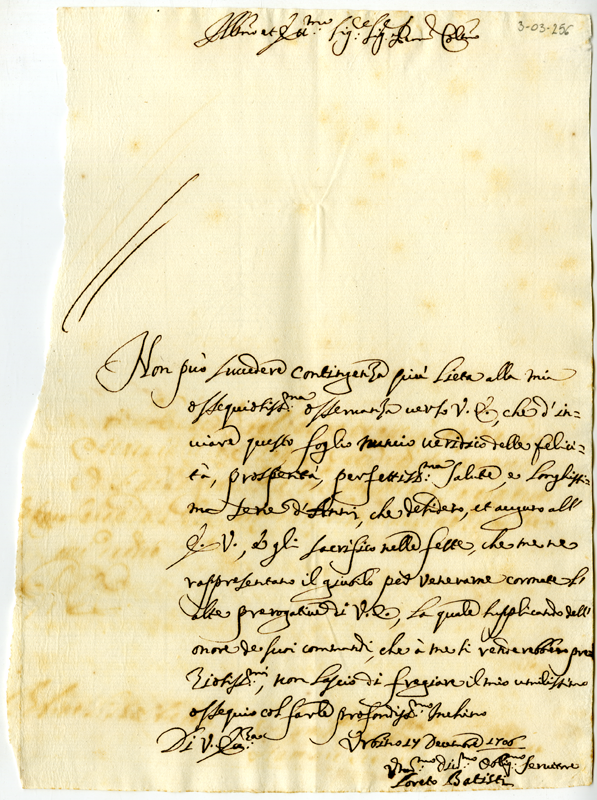 3-03-256
Ill.mo et Ecc.mo Sig.re Sig.re Pron Col.mo
Non può succedere contingenza più lieta alla mia
ossequiotiss.ma osservanza verso V. E., che d'in=
viare questo foglio nuncio veridico delle felici=
tà, prosperità, perfettiss.ma salute, e longhissi=
ma serie d'Anni, che desidero, et auguro all'
E. V., e gli sacrifico nelle feste, che me ne
rappresentano il giubilo per vederne coronate le
alte prerogative di V. E., la quale supplicando dell'
onore de suoi comandi, che à me si renderebbero pre
ziotiss.mi, non lascio di fregiare il mio umilissimo
ossequio col farle profondiss.mo Inchino
Di V. Ecc.za Urbino 17 Decembre 1706
Um.mo Div.mo Oblig.mo Servitore
Loreto Batisti